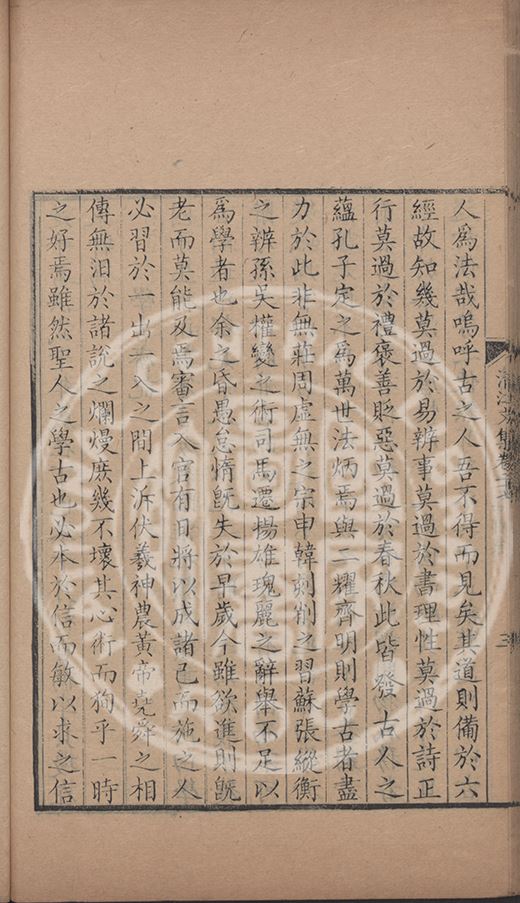 人爲法哉嗚呼古之人吾不得而見矣其道則備於六
經故知幾莫過於易辨事莫過於書理性莫過於詩正
行莫過於禮褒善貶惡莫過於春秋此皆發古人之
蘊孔子定之爲萬世法炳焉與二耀齊明則學古者盡
力於此非無莊周虛無之宗申韓刻削之習蘇張縱衡
之辨孫吳權變之術司馬遷揚雄瑰麗之辭舉不足以
爲學者也余之昏愚怠惰旣失於早歲今雖欲進則旣
老而莫能及焉審言入官有日將以成諸己而施之人
必習於一出一入之間上泝伏羲神農黃帝堯舜之相
傳無汨於諸說之爛熳庶幾不壞其心術而狥乎一時
之好焉雖然聖人之學古也必本於信而敏以求之信
清江文集卷
三